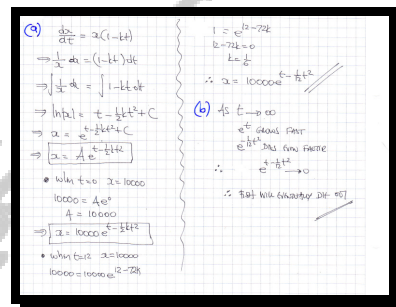 (a) dx/dt = x(1-kt)
⇒ 1/x dx = (1-kt) dt
⇒ ∫ 1/x dx = ∫ 1-kt dt
⇒ ln|x| = t - ½kt² + C
⇒ x = e^{t-½kt²+C}
⇒ x = A e^{t-½kt²}
• when t=0 x=10000
10000 = Ae⁰
A = 10000
⇒ x = 10000 e^{t-½kt²}
• when t=12 x=10000
10000 = 10000 e^{12-72k}
1 = e^{12-72k}
12-72k=0
k = 1/6
∴ x = 10000 e^{t-1/12 t²}
(b) AS t → ∞
e^t GROWS FAST
e^{-1/12 t²}
∴ e^{t-1/12 t²} → 0
∴ WILL